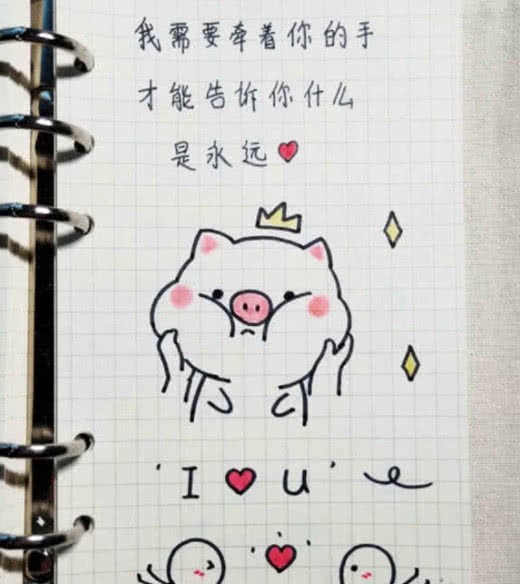 我需要牵着你的手
才能告诉你什么
是永远
I ❤ U